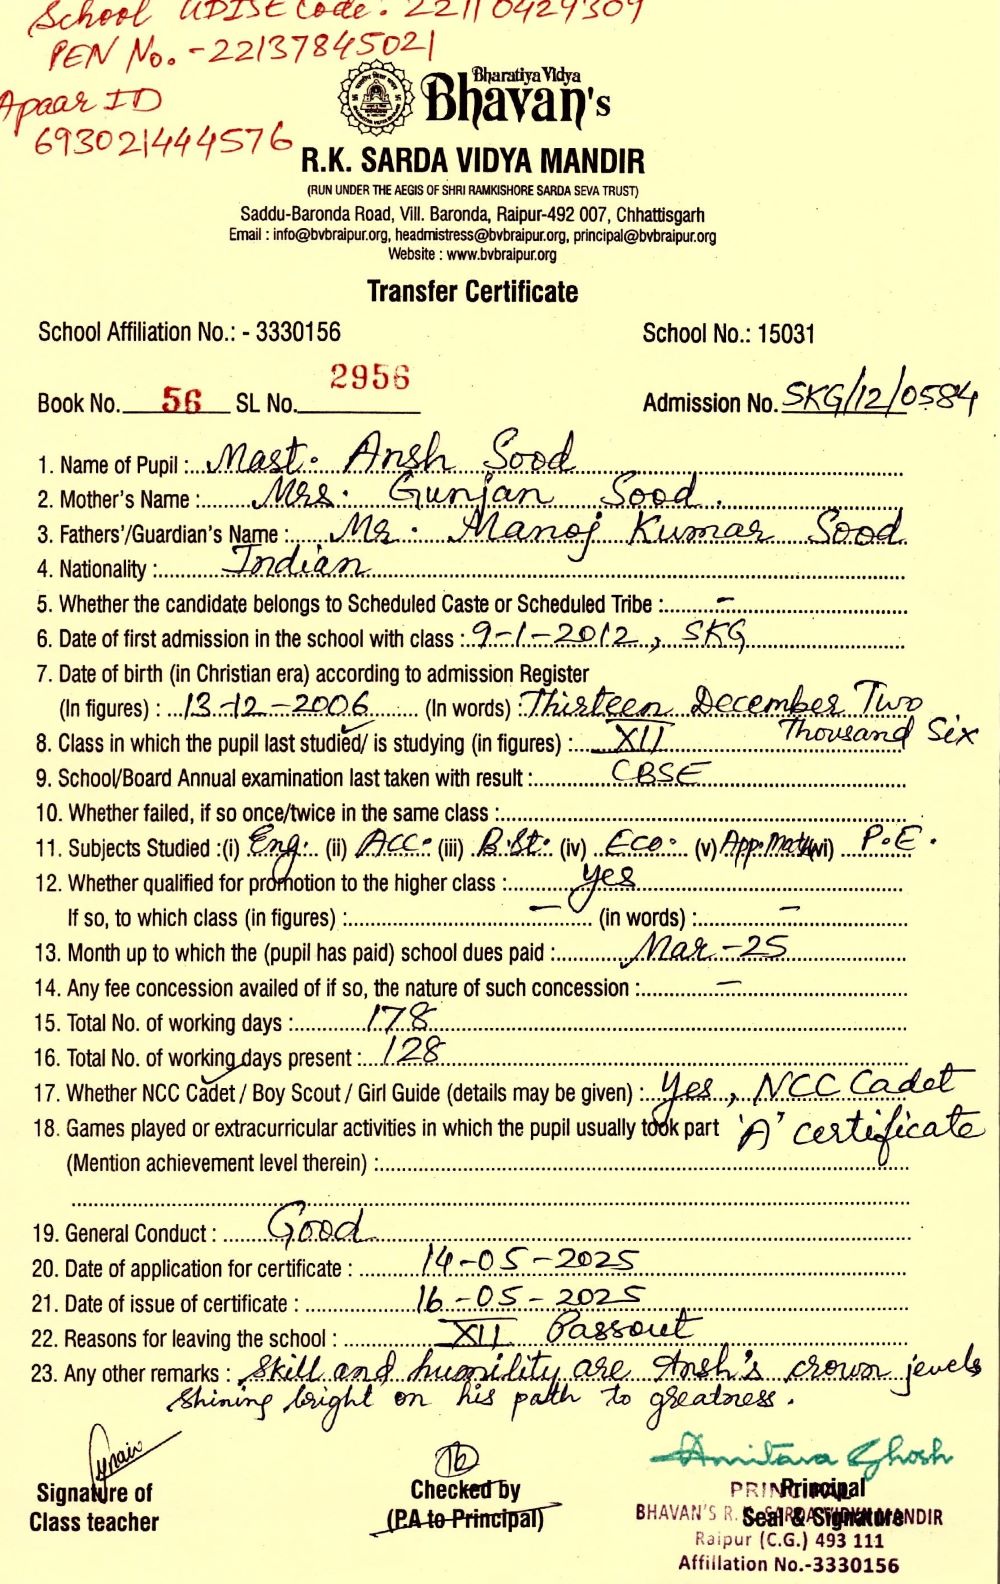 School UDISE Code. 22110429309
PEN No. - 22137845021
Apaar ID
693021444576
Bharatiya Vidya
Bhavan's
R.K. SARDA VIDYA MANDIR
(RUN UNDER THE AEGIS OF SHRI RAMKISHORE SARDA SEVA TRUST)
Saddu-Baronda Road, Vill. Baronda, Raipur-492 007, Chhattisgarh
Email : info@bvbraipur.org, headmistress@bvbraipur.org, principal@bvbraipur.org
Website : www.bvbraipur.org
Transfer Certificate
School Affiliation No.: - 3330156 School No.: 15031
Book No. 56 SL No. 2956 Admission No. SKG/12/0584
1. Name of Pupil : Mast. Ansh Sood
2. Mother's Name : Mrs. Gunjan Sood.
3. Fathers'/Guardian's Name : Mr. Manoj Kumar Sood
4. Nationality : Indian
5. Whether the candidate belongs to Scheduled Caste or Scheduled Tribe : -
6. Date of first admission in the school with class : 9-1-2012, SKG
7. Date of birth (in Christian era) according to admission Register
(In figures) : 13-12-2006 (In words) : Thirteen December Two
Thousand Six
8. Class in which the pupil last studied/ is studying (in figures) : XII
9. School/Board Annual examination last taken with result : CBSE
10. Whether failed, if so once/twice in the same class :
11. Subjects Studied :(i) Eng. (ii) ACC. (iii) B.St. (iv) Eco. (v) App. Math (vi) P.E.
12. Whether qualified for promotion to the higher class : yes
If so, to which class (in figures) : - (in words) : -
13. Month up to which the (pupil has paid) school dues paid : Mar-25
14. Any fee concession availed of if so, the nature of such concession : -
15. Total No. of working days : 178
16. Total No. of working days present : 128
17. Whether NCC Cadet / Boy Scout / Girl Guide (details may be given) : Yes, NCC Cadet
18. Games played or extracurricular activities in which the pupil usually took part 'A' certificate
(Mention achievement level therein) :
19. General Conduct : Good
20. Date of application for certificate : 14-05-2025
21. Date of issue of certificate : 16-05-2025
22. Reasons for leaving the school : XII Passout
23. Any other remarks : Skill and humility are Ansh's crown jewels
shining bright on his path to greatness.
Amitava Ghosh
Signature of
Class teacher
Checked by
(P.A to Principal)
Principal
Seal & Signature
PRINCIPAL
BHAVAN'S R.K. SARDA VIDYA MANDIR
Raipur (C.G.) 493 111
Affillation No.-3330156